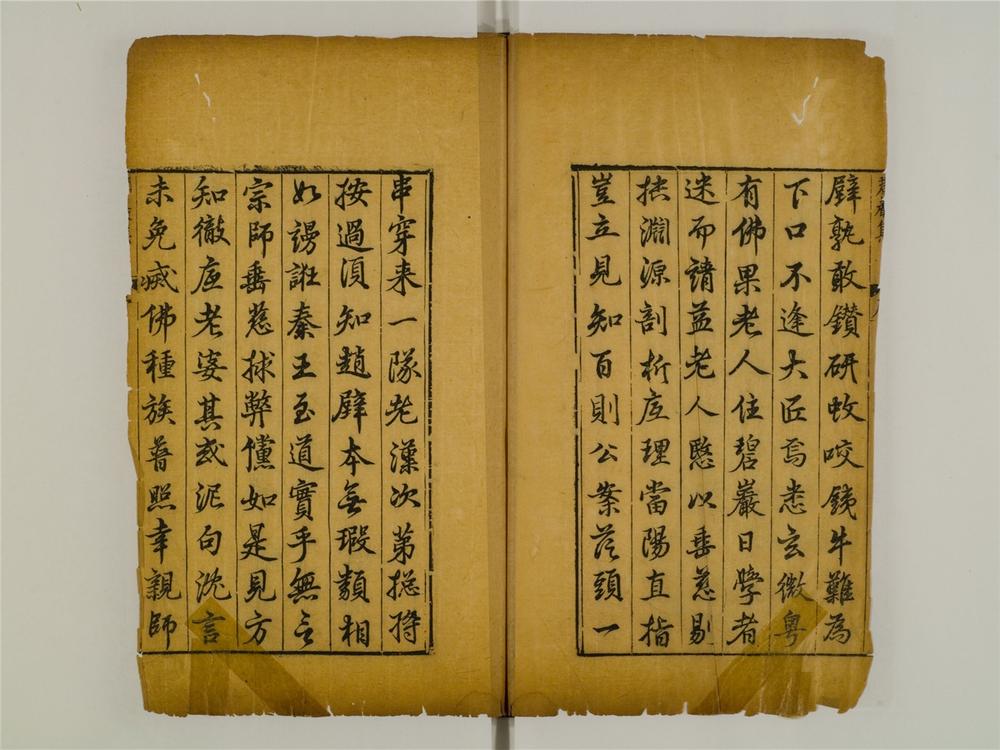 壁孰敢鑽研蚊咬鐵牛難為
下口不逢大匠焉悉玄微粵
有佛果老人住碧巖日學者
迷而請益老人愍以垂慈剔
抉淵源剖析底理當陽直指
豈立見知百則公案從頭一
串穿来一隊老漢次第捴將
按過須知趙璧本無瑕纇相
如謾誑秦王至道實乎無言
宗師垂慈救弊儻如是見方
知徹底老婆其或泥句沈言
未免滅佛種族普照幸親師